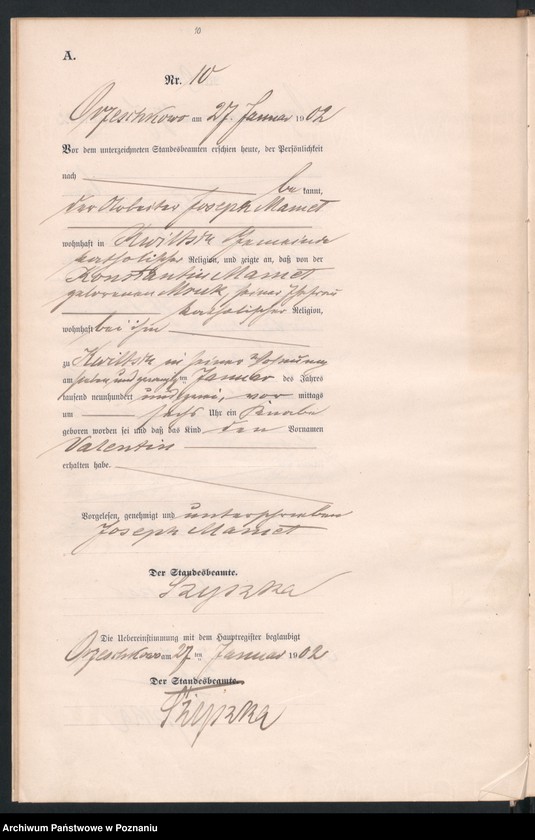 10
A.
Nr. 10
Orzeschkowo am 27. Januar 1902
Vor dem unterzeichneten Standesbeamten erschien heute, der Persönlichkeit
nach be kannt,
der Arbeiter Joseph Mamet
wohnhaft in Gemeinde
katholischer Religion, und zeigte an, daß von der
Mamet
geborenen seiner Ehefrau
katholischer Religion,
wohnhaft bei ihm
zu in seiner Wohnung
am ten Januar des Jahres
tausend neunhundert und zwei, vor mittags
um sechs Uhr ein Knabe
geboren worden sei und daß das Kind den Vornamen
Valentin
erhalten habe.
Vorgelesen, genehmigt und unterschrieben
Joseph Mamet
Der Standesbeamte.
Die Uebereinstimmung mit dem Hauptregister beglaubigt
Orzeschkowo am 27 ten Januar 1902
Der Standesbeamte.
Archiwum Państwowe w Poznaniu